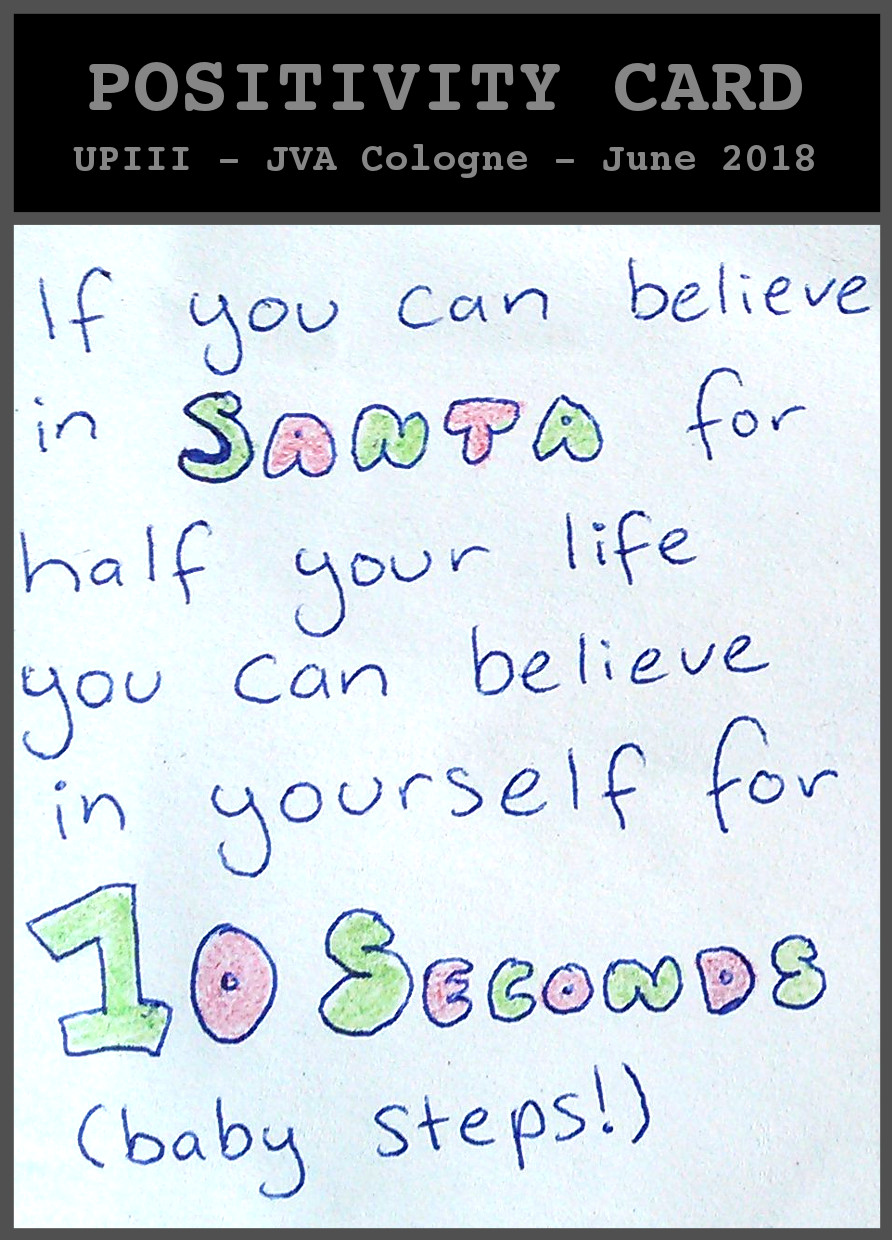 POSITIVITY CARD
UPIII - JVA Cologne - June 2018
If you can believe
in SANTA for
half your life
you can believe
in yourself for
10 SECONDS
(baby steps!)